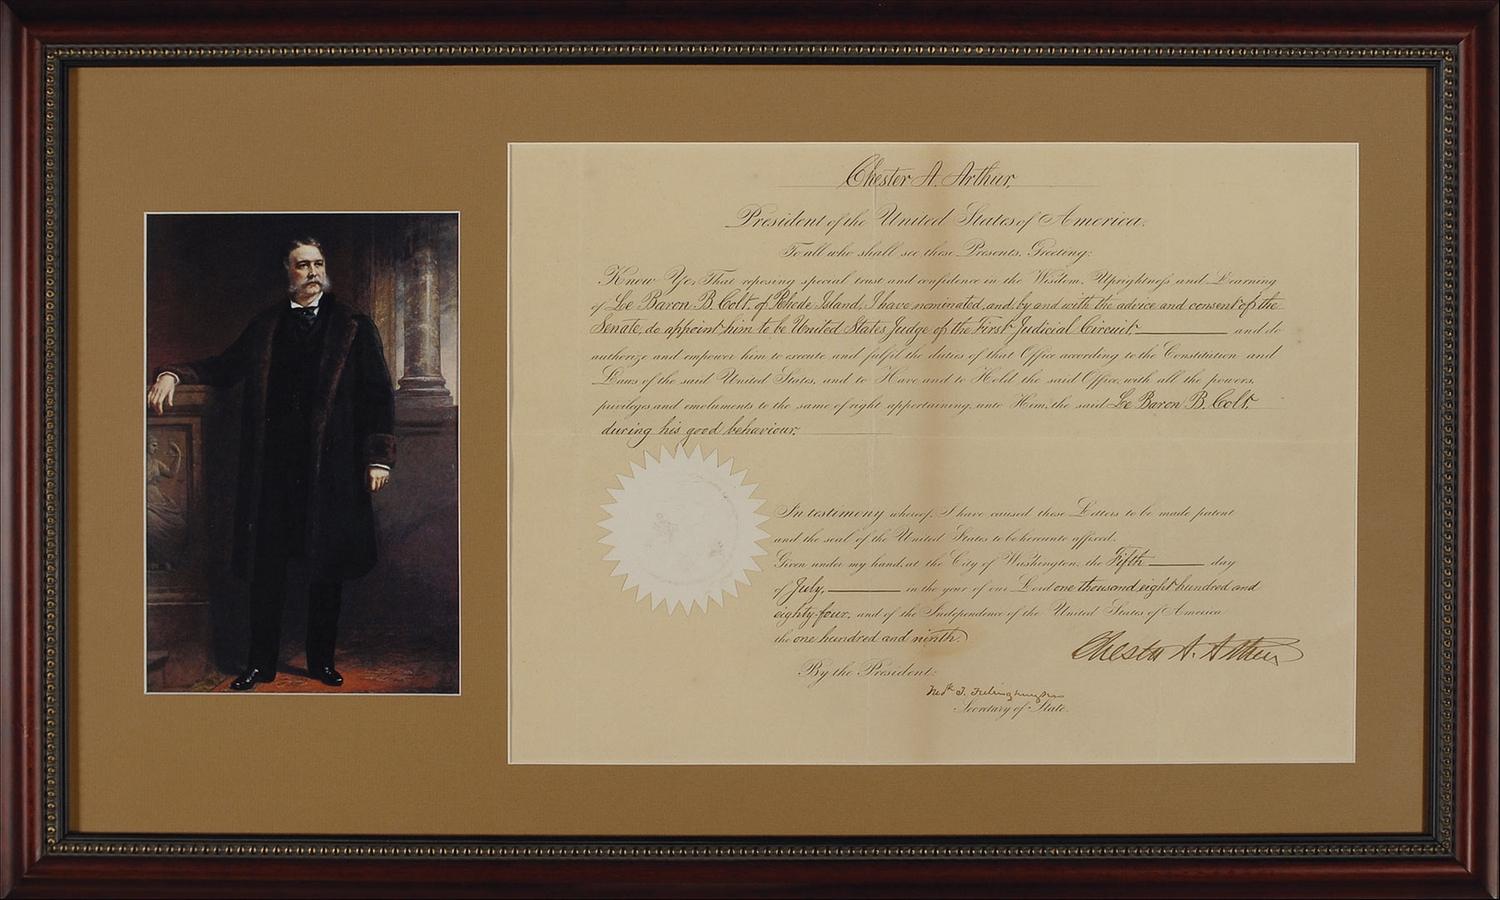 Chester A. Arthur,
President of the United States of America.
To all who shall see these Presents, Greeting:
Know Ye, That reposing special trust and confidence in the Wisdom, Uprightness and Learning
of Le Baron B. Colt, of Rhode Island, I have nominated, and by and with the advice and consent of the
Senate, do appoint him to be United States Judge of the First Judicial Circuit, and do
authorize and empower him to execute and fulfil the duties of that Office according to the Constitution and
Laws of the said United States, and to Have and to Hold the said Office, with all the powers,
privileges and emoluments to the same of right appertaining, unto Him, the said Le Baron B. Colt,
during his good behaviour.
In testimony whereof, I have caused these Letters to be made patent
and the seal of the United States to be hereunto affixed.
Given under my hand, at the City of Washington, the Fifth day
of July, in the year of our Lord one thousand eight hundred and
eighty-four, and of the Independence of the United States of America
the one hundred and ninth.
Chester A. Arthur
By the President:
Fredk. T. Frelinghuysen
Secretary of State.